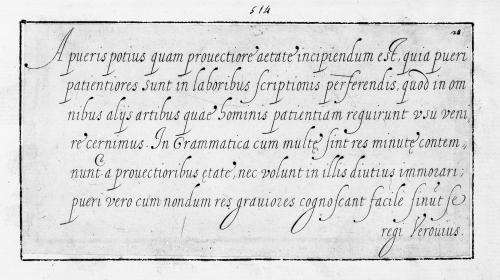 514
28
A pueris potius quam prouectiore aetate incipiendum est, quia pueri
patientiores sunt in laboribus scriptionis perferendis, quod in om
nibus alijs artibus quae hominis patientiam requirunt vsu veni
re cernimus. In Grammatica cum multę sint res minutę contem„
nunt a prouectioribus ętate, nec volunt in illis diutius immorari;
pueri vero cum nondum res grauiores cognoscant facile sinũt se
regi Verouius.